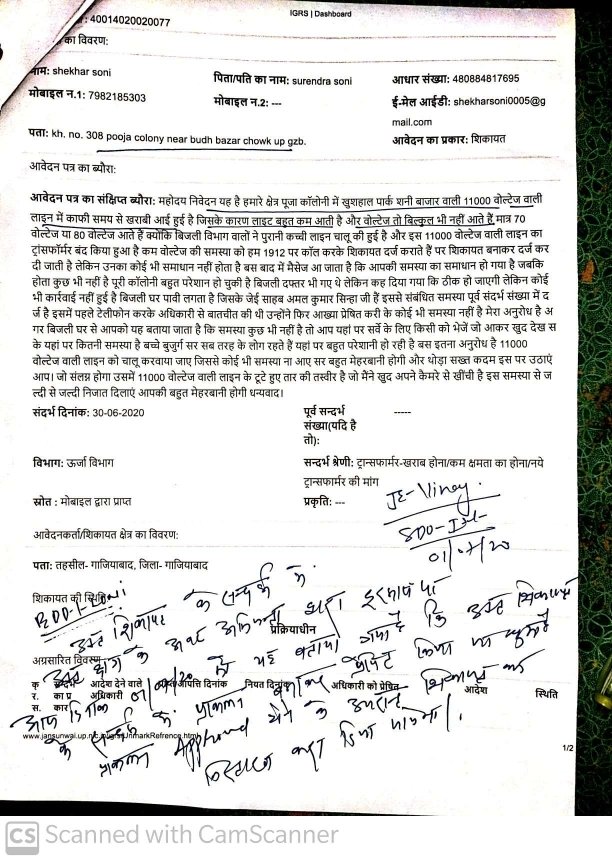 : 40014020020077
IGRS | Dashboard
का विवरण:
नाम: shekhar soni
पिता/पति का नाम: surendra soni
आधार संख्या: 480884817695
मोबाइल न.1: 7982185303
मोबाइल न.2: ---
ई-मेल आईडी: shekharsoni0005@g
mail.com
पता: kh. no. 308 pooja colony near budh bazar chowk up gzb.
आवेदन का प्रकार: शिकायत
आवेदन पत्र का ब्यौरा:
आवेदन पत्र का संक्षिप्त ब्यौरा: महोदय निवेदन यह है हमारे क्षेत्र पूजा कॉलोनी में खुशहाल पार्क शनी बाजार वाली 11000 वोल्टेज वाली
लाइन में काफी समय से खराबी आई हुई है जिसके कारण लाइट बहुत कम आती है और वोल्टेज तो बिल्कुल भी नहीं आते हैं, मात्र 70
वोल्टेज या 80 वोल्टेज आते हैं क्योंकि बिजली विभाग वालों ने पुरानी कच्ची लाइन चालू की हुई है और इस 11000 वोल्टेज वाली लाइन का
ट्रांसफॉर्मर बंद किया हुआ है कम वोल्टेज की समस्या को हम 1912 पर कॉल करके शिकायत दर्ज कराते हैं पर शिकायत बनाकर दर्ज कर
दी जाती है लेकिन उनका कोई भी समाधान नहीं होता है बस बाद में मैसेज आ जाता है कि आपकी समस्या का समाधान हो गया है जबकि
होता कुछ भी नहीं है पूरी कॉलोनी बहुत परेशान हो चुकी है बिजली दफ्तर भी गए थे लेकिन कह दिया गया कि ठीक हो जाएगी लेकिन कोई
भी कार्रवाई नहीं हुई है बिजली घर पावी लगता है जिसके जेई साहब अमल कुमार सिन्हा जी हैं इससे संबंधित समस्या पूर्व संदर्भ संख्या में द
र्ज है इसमें पहले टेलीफोन करके अधिकारी से बातचीत की थी उन्होंने फिर आख्या प्रेषित करी के कोई भी समस्या नहीं है मेरा अनुरोध है अ
गर बिजली घर से आपको यह बताया जाता है कि समस्या कुछ भी नहीं है तो आप यहां पर सर्वे के लिए किसी को भेजें जो आकर खुद देख स
के यहां पर कितनी समस्या है बच्चे बुजुर्ग सर सब तरह के लोग रहते हैं यहां पर बहुत परेशानी हो रही है बस इतना अनुरोध है 11000
वोल्टेज वाली लाइन को चालू करवाया जाए जिससे कोई भी समस्या ना आए सर बहुत मेहरबानी होगी और थोड़ा सख्त कदम इस पर उठाएं
आप। जो संलग्न होगा उसमें 11000 वोल्टेज वाली लाइन के टूटे हुए तार की तस्वीर है जो मैंने खुद अपने कैमरे से खींची है इस समस्या से ज
ल्दी से जल्दी निजात दिलाएं आपकी बहुत मेहरबानी होगी धन्यवाद।
संदर्भ दिनांक: 30-06-2020
पूर्व सन्दर्भ
-----
संख्या(यदि है
तो):
विभाग: ऊर्जा विभाग
सन्दर्भ श्रेणी: ट्रान्सफार्मर-खराब होना/कम क्षमता का होना/नये
ट्रान्सफार्मर की मांग
स्रोत : मोबाइल द्वारा प्राप्त
प्रकृति: ---
JE-Viney.
आवेदनकर्ता/शिकायत क्षेत्र का विवरण:
पता: तहसील- गाजियाबाद, जिला- गाजियाबाद
शिकायत की स्थिति
उक्त शिकायत के सन्दर्भ में
प्रक्रियाधीन
अग्रसारित विवरण
आदेश देने वाले
आपत्ति दिनांक
नियत दिनांक
अधिकारी को प्रेषित
आदेश
स्थिति
र.
अधिकारी
स.
प्राक्कलन Approved होने के उपरान्त शिकायत का
निस्तारण करा दिया जायेगा।
1/2
CS Scanned with CamScanner